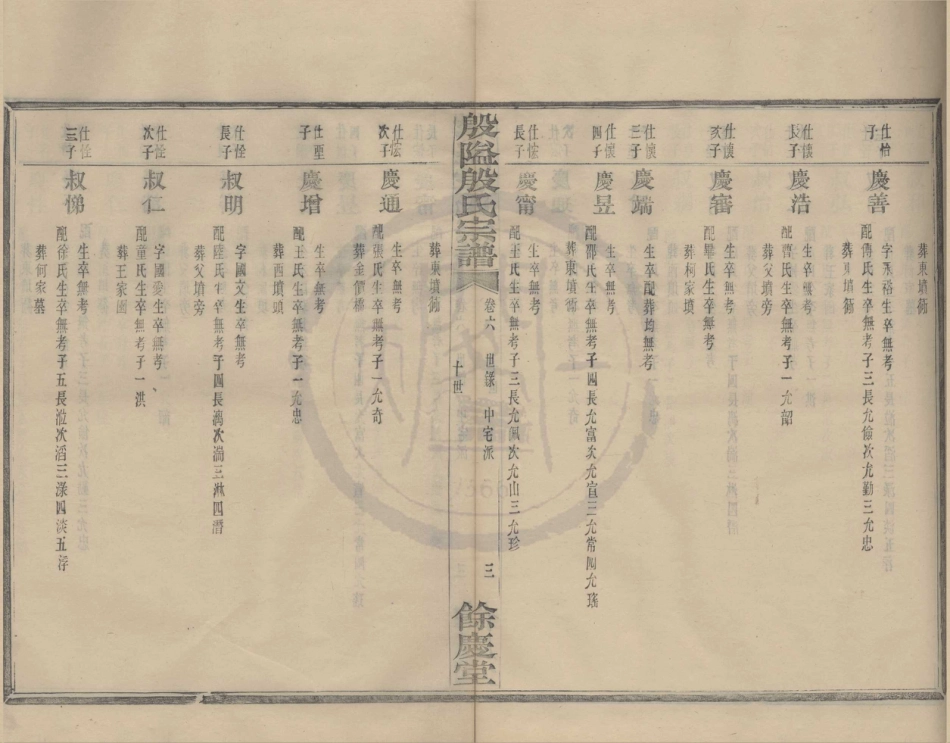 葬東墳䤹
仕怡子
慶善
字永裕生卒無考
配傅氏生卒無考子三長允儉次允勤三允忠
葬東墳䤹
仕懷長子
慶浩
生卒無考
配曹氏生卒無考子一允韶
葬父墳旁
仕懷次子
慶審
生卒無考
配 氏生卒無考
葬柯家墳
仕懷三子
慶端
生卒配葬均無考
仕懷四子
慶昱
生卒無考
配邵氏生卒無考子四長允富次允宣三允常四允瑤
葬東墳
仕 長子
慶甯
生卒無考
配王氏生卒無考子三長允 次允山三允珍
葬東墳
殷隘殷氏宗譜
卷六
世錄 中宅派
十世
三
餘慶堂
仕 次子
慶通
生卒無考
配張氏生卒無考子一允奇
葬金 橋
仕 子
慶增
生卒無考
配王氏生卒無考子一允忠
葬西墳頭
仕 長子
叔明
字國文生卒無考
配陸氏生卒無考子四長 次 三淋四潛
葬父墳旁
仕 次子
叔仁
字國 生卒無考
配童氏生卒無考子一洪
葬王家園
仕 三子
叔悌
生卒無考
配徐氏生卒無考子五長 次滔三淥四淡五浮
葬何家墓